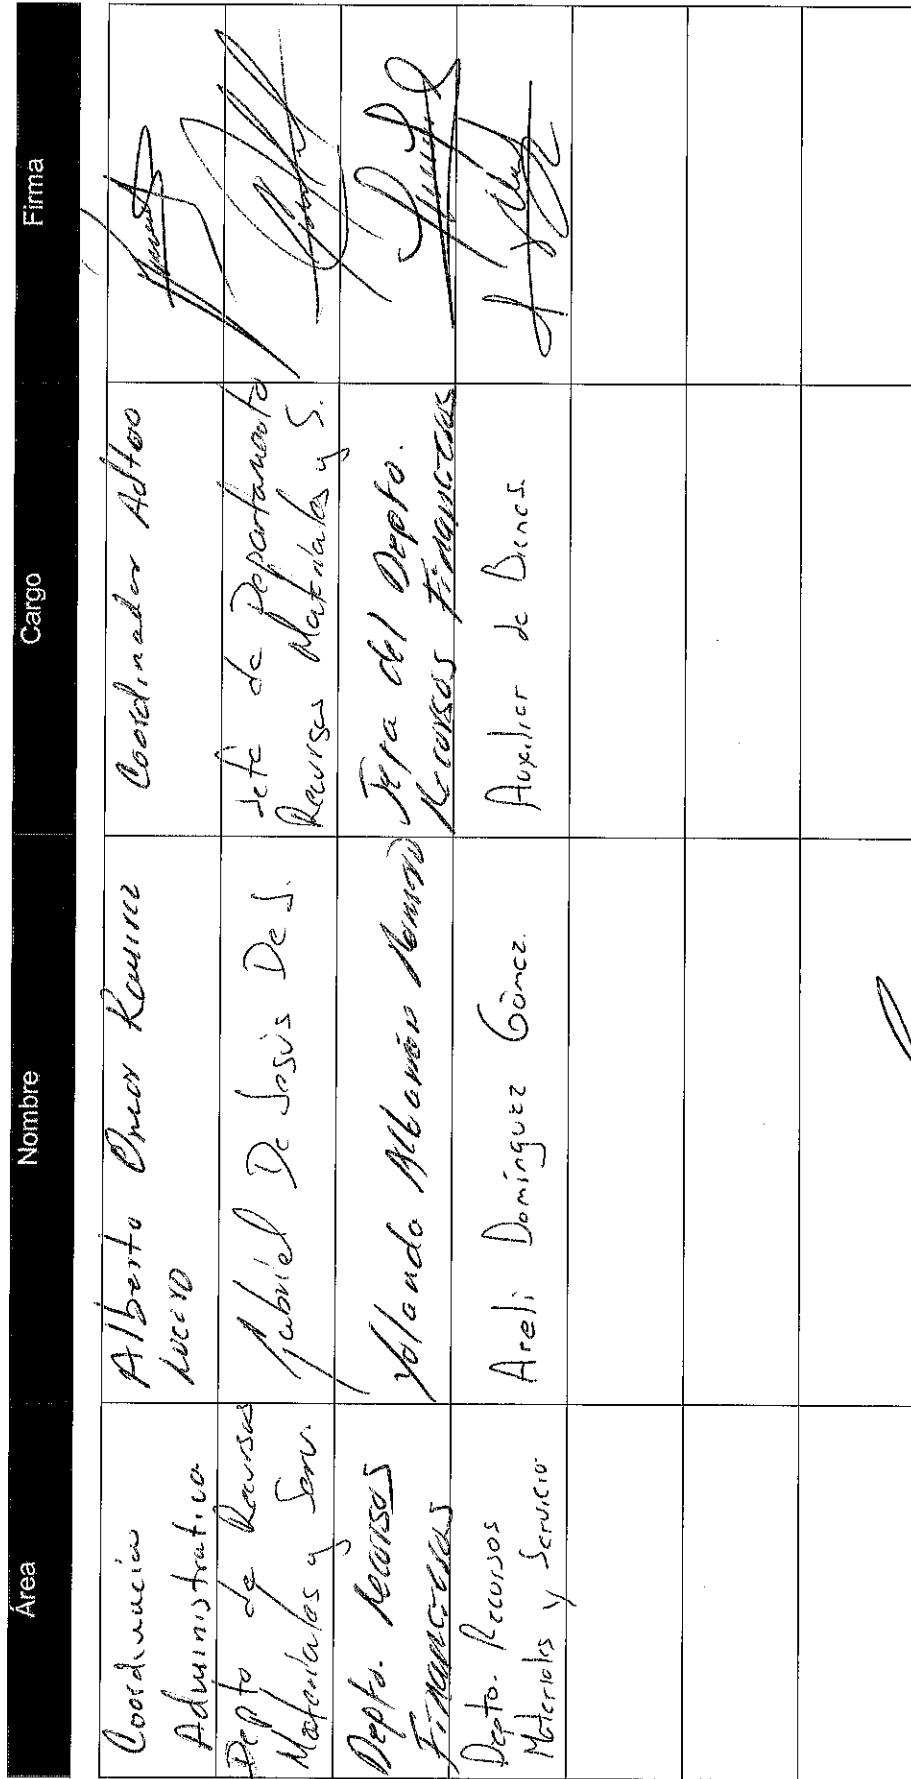 Área Nombre Cargo Firma
Coordinación
Administrativa
Alberto Omar Ramirez
Lucero
Coordinador Adtivo
Depto de Recursos
Materiales y Serv.
Gabriel De Jesús De J.
Jefe de Departamento
Recursos Materiales y S.
Depto. Recursos
Financieros
Yolanda
Jefa del Depto.
Recursos Financieros
Depto. Recursos
Materiales y Servicio
Areli Domínguez Gómez.
Auxiliar de Bienes.